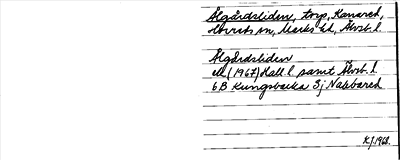 Älgårdsliden, torp, Kanared,
sn, Marks hd, Älvsb. l.
Älgårdsliden
ek (1967) Hall. l samt Älvsb. l.
6B Kungsbacka 3j Nabbared
KJ 1968.